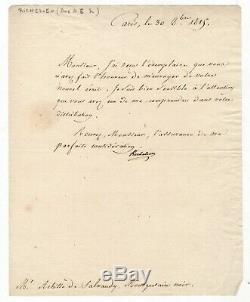 RICHELIEU (Duc A. E. de)
Paris, le 30 Xbre 1815.
Monsieur, j'ai reçu l'exemplaire que
vous avez fait l'honneur de m'envoyer de votre
nouvel écrit. Je suis bien sensible à l'attention
que vous avez eue de me comprendre dans votre
distribution.
Recevez, Monsieur, l'assurance de ma
parfaite considération.
Richelieu
Mr. de Salvandy, Mousquetaire noir.